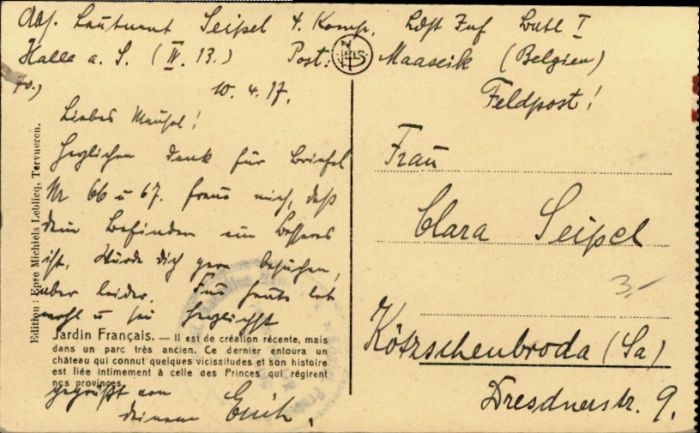 Abs. Leutnant Seipel 4. Komp. Ldst Inf Batl I
Halle a. S. (IV. 13.) Post: Maaseik (Belgien)
NELS
Feldpost!
10. 4. 17.
Liebes Mausel!
Herzlichen Dank für Briefel
Nr 66 u 67. Freue mich, daß
dein Befinden ein besseres
ist. Würde dich gern besuchen,
aber leider. Für heute leb
wohl u sei herzlichst
Jardin Français. — Il est de création récente, mais
dans un parc très ancien. Ce dernier entoura un
château qui connut quelques vicissitudes et son histoire
est liée intimement à celle des Princes qui régirent
nos provinces.
gegrüßt von
deinem Erich.
Edition : Epse Michiels Leblicq, Tervueren.
Frau
Clara Seipel
3,-
Kötzschenbroda (Sa)
Dresdnerstr. 9.